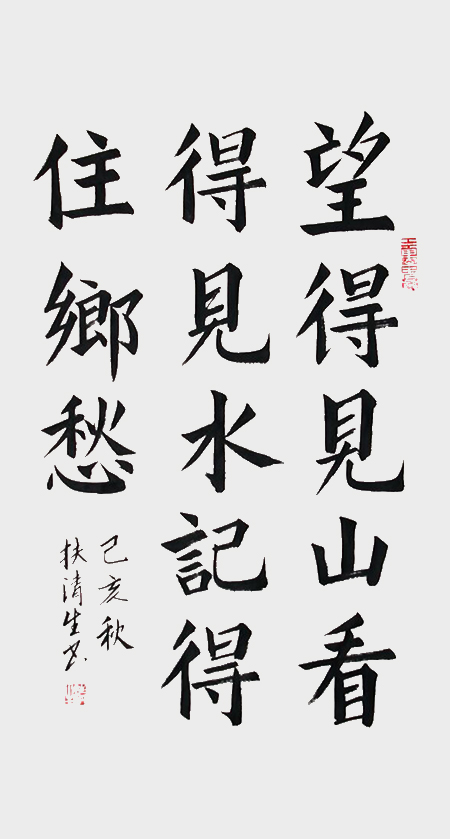 望得見山看
得見水記得
住鄉愁
己亥秋
扶清生书